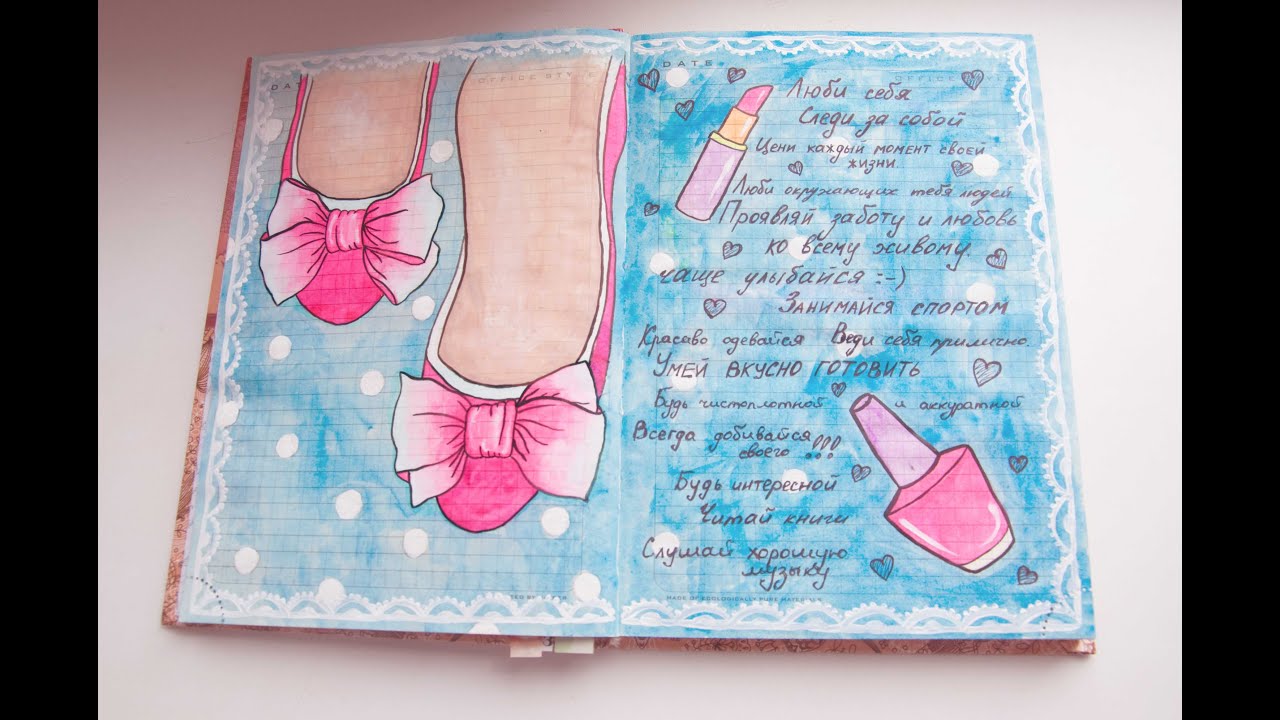 DATE
OFFICE STYLE
Люби себя
Следи за собой
Цени каждый момент своей
жизни.
Люби окружающих тебя людей
Проявляй заботу и любовь
ко всему живому.
чаще улыбайся :-)
Занимайся спортом
Красиво одевайся Веди себя прилично.
Умей вкусно готовить
Будь чистоплотной и аккуратной
Всегда добивайся
своего !!!
Будь интересной
Читай книги
Слушай хорошую
музыку
MADE OF ECOLOGICALLY PURE MATERIALS